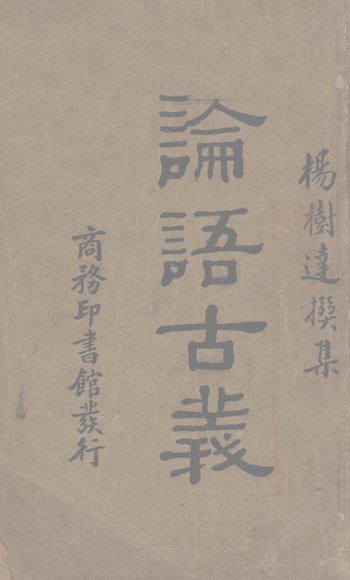 楊樹達撰集
論語古義
商務印書館發行